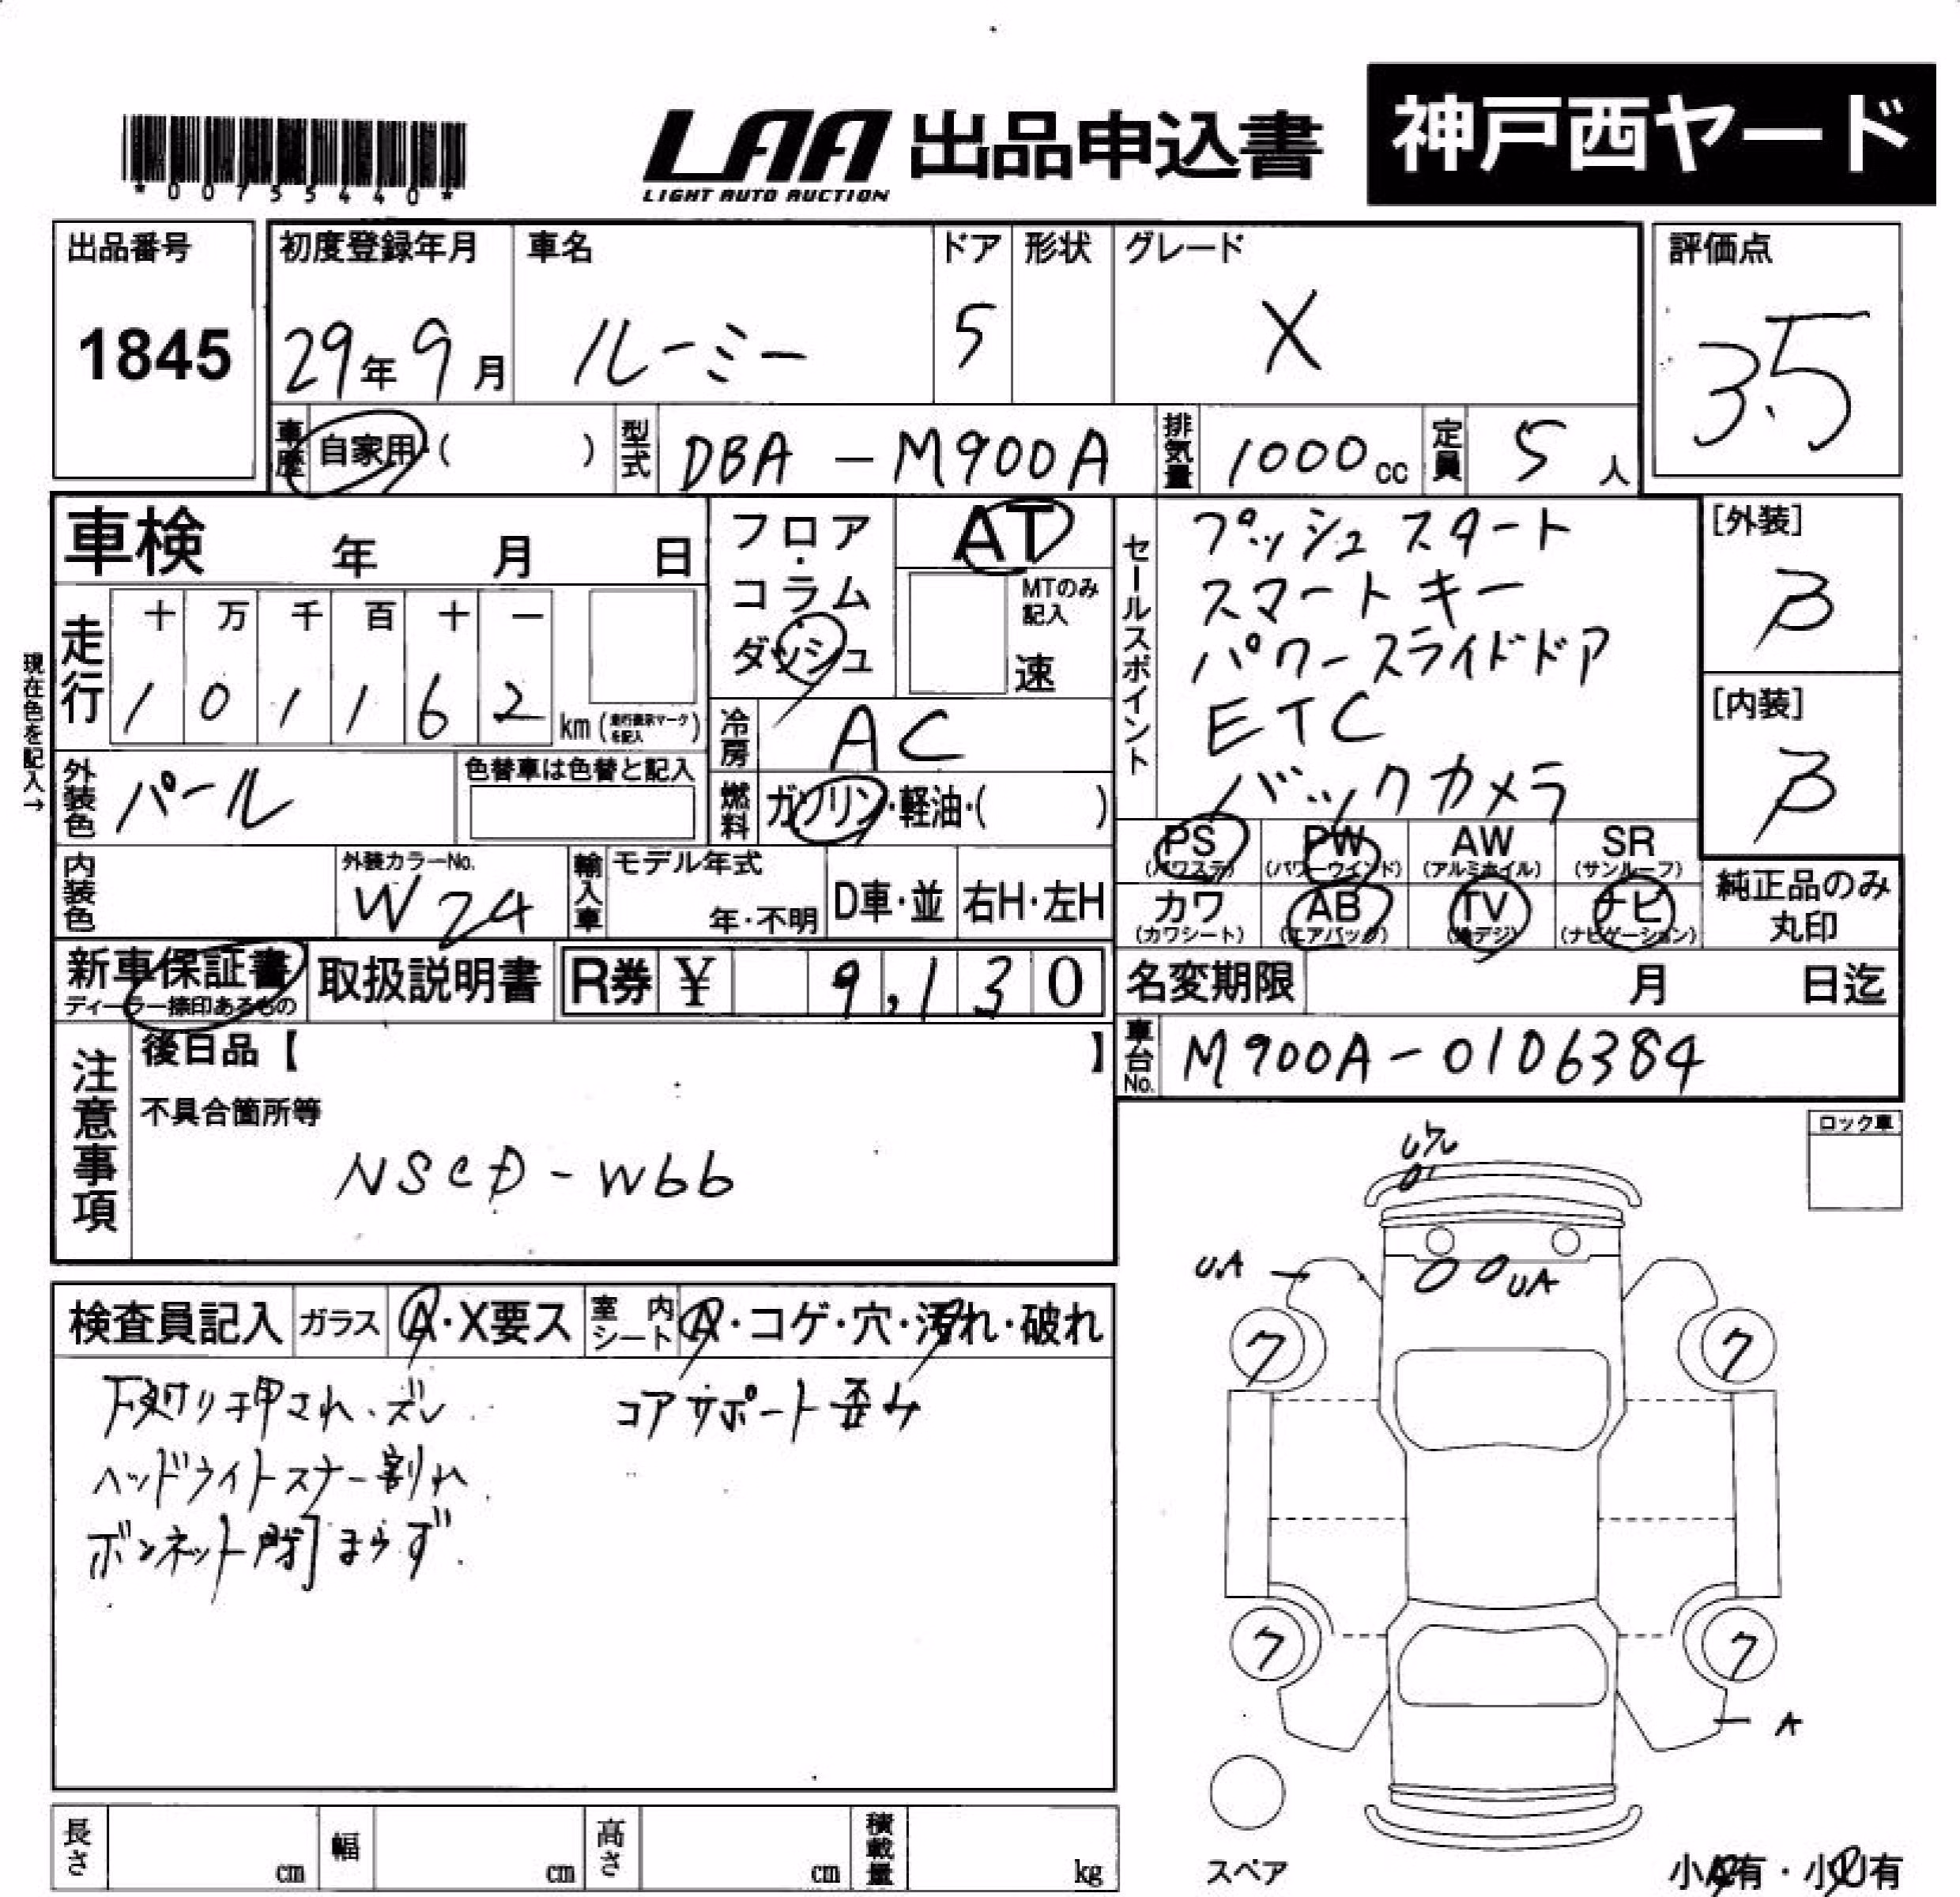 *0075440*
LAA 出品申込書
LIGHT AUTO AUCTION
神戸西ヤード
出品番号
1845
初度登録年月
29年 9月
車名
ルーミー
ドア
5
形状
グレード
X
評価点
3.5
車歴
自家用・( )
型式
DBA-M900A
排気量
1000cc
定員
5人
車検 年 月 日
フロア・コラム
ダッシュ
AT
MTのみ記入
速
セールスポイント
プッシュスタート
スマートキー
パワースライドドア
ETC
バックカメラ
[外装]
B
[内装]
B
現在色を記入→
走行
十 万 千 百 十 一
1 0 1 1 6 2 km (走行表示マークを記入)
冷房
AC
外装色
パール
色替車は色替と記入
燃料
ガソリン・軽油・( )
PS (パワステ)
PW (パワーウインド)
AW (アルミホイル)
SR (サンルーフ)
カワ (カワシート)
AB (エアバッグ)
TV (地デジ)
ナビ (ナビゲーション)
純正品のみ丸印
内装色
外装カラーNo.
W24
輸入車
モデル年式
年・不明
D車・並
右H・左H
新車保証書
ディーラー捺印あるもの
取扱説明書
R券 ¥ 9,130
名変期限 月 日迄
車台No.
M900A-0106384
注意事項
後日品【 】
不具合箇所等
NSCD-W66
ロック車
検査員記入
ガラス
A・X要ス
室内シート
A・コゲ・穴・汚れ・破れ
下受け押され、ズレ
コアサポート歪み
ヘッドライトスナー割れ
ボンネット閉まらず
UA
UA
ク
ク
ク
ク
A
スペア
小A有・小U有
長さ cm
幅 cm
高さ cm
積載量 kg